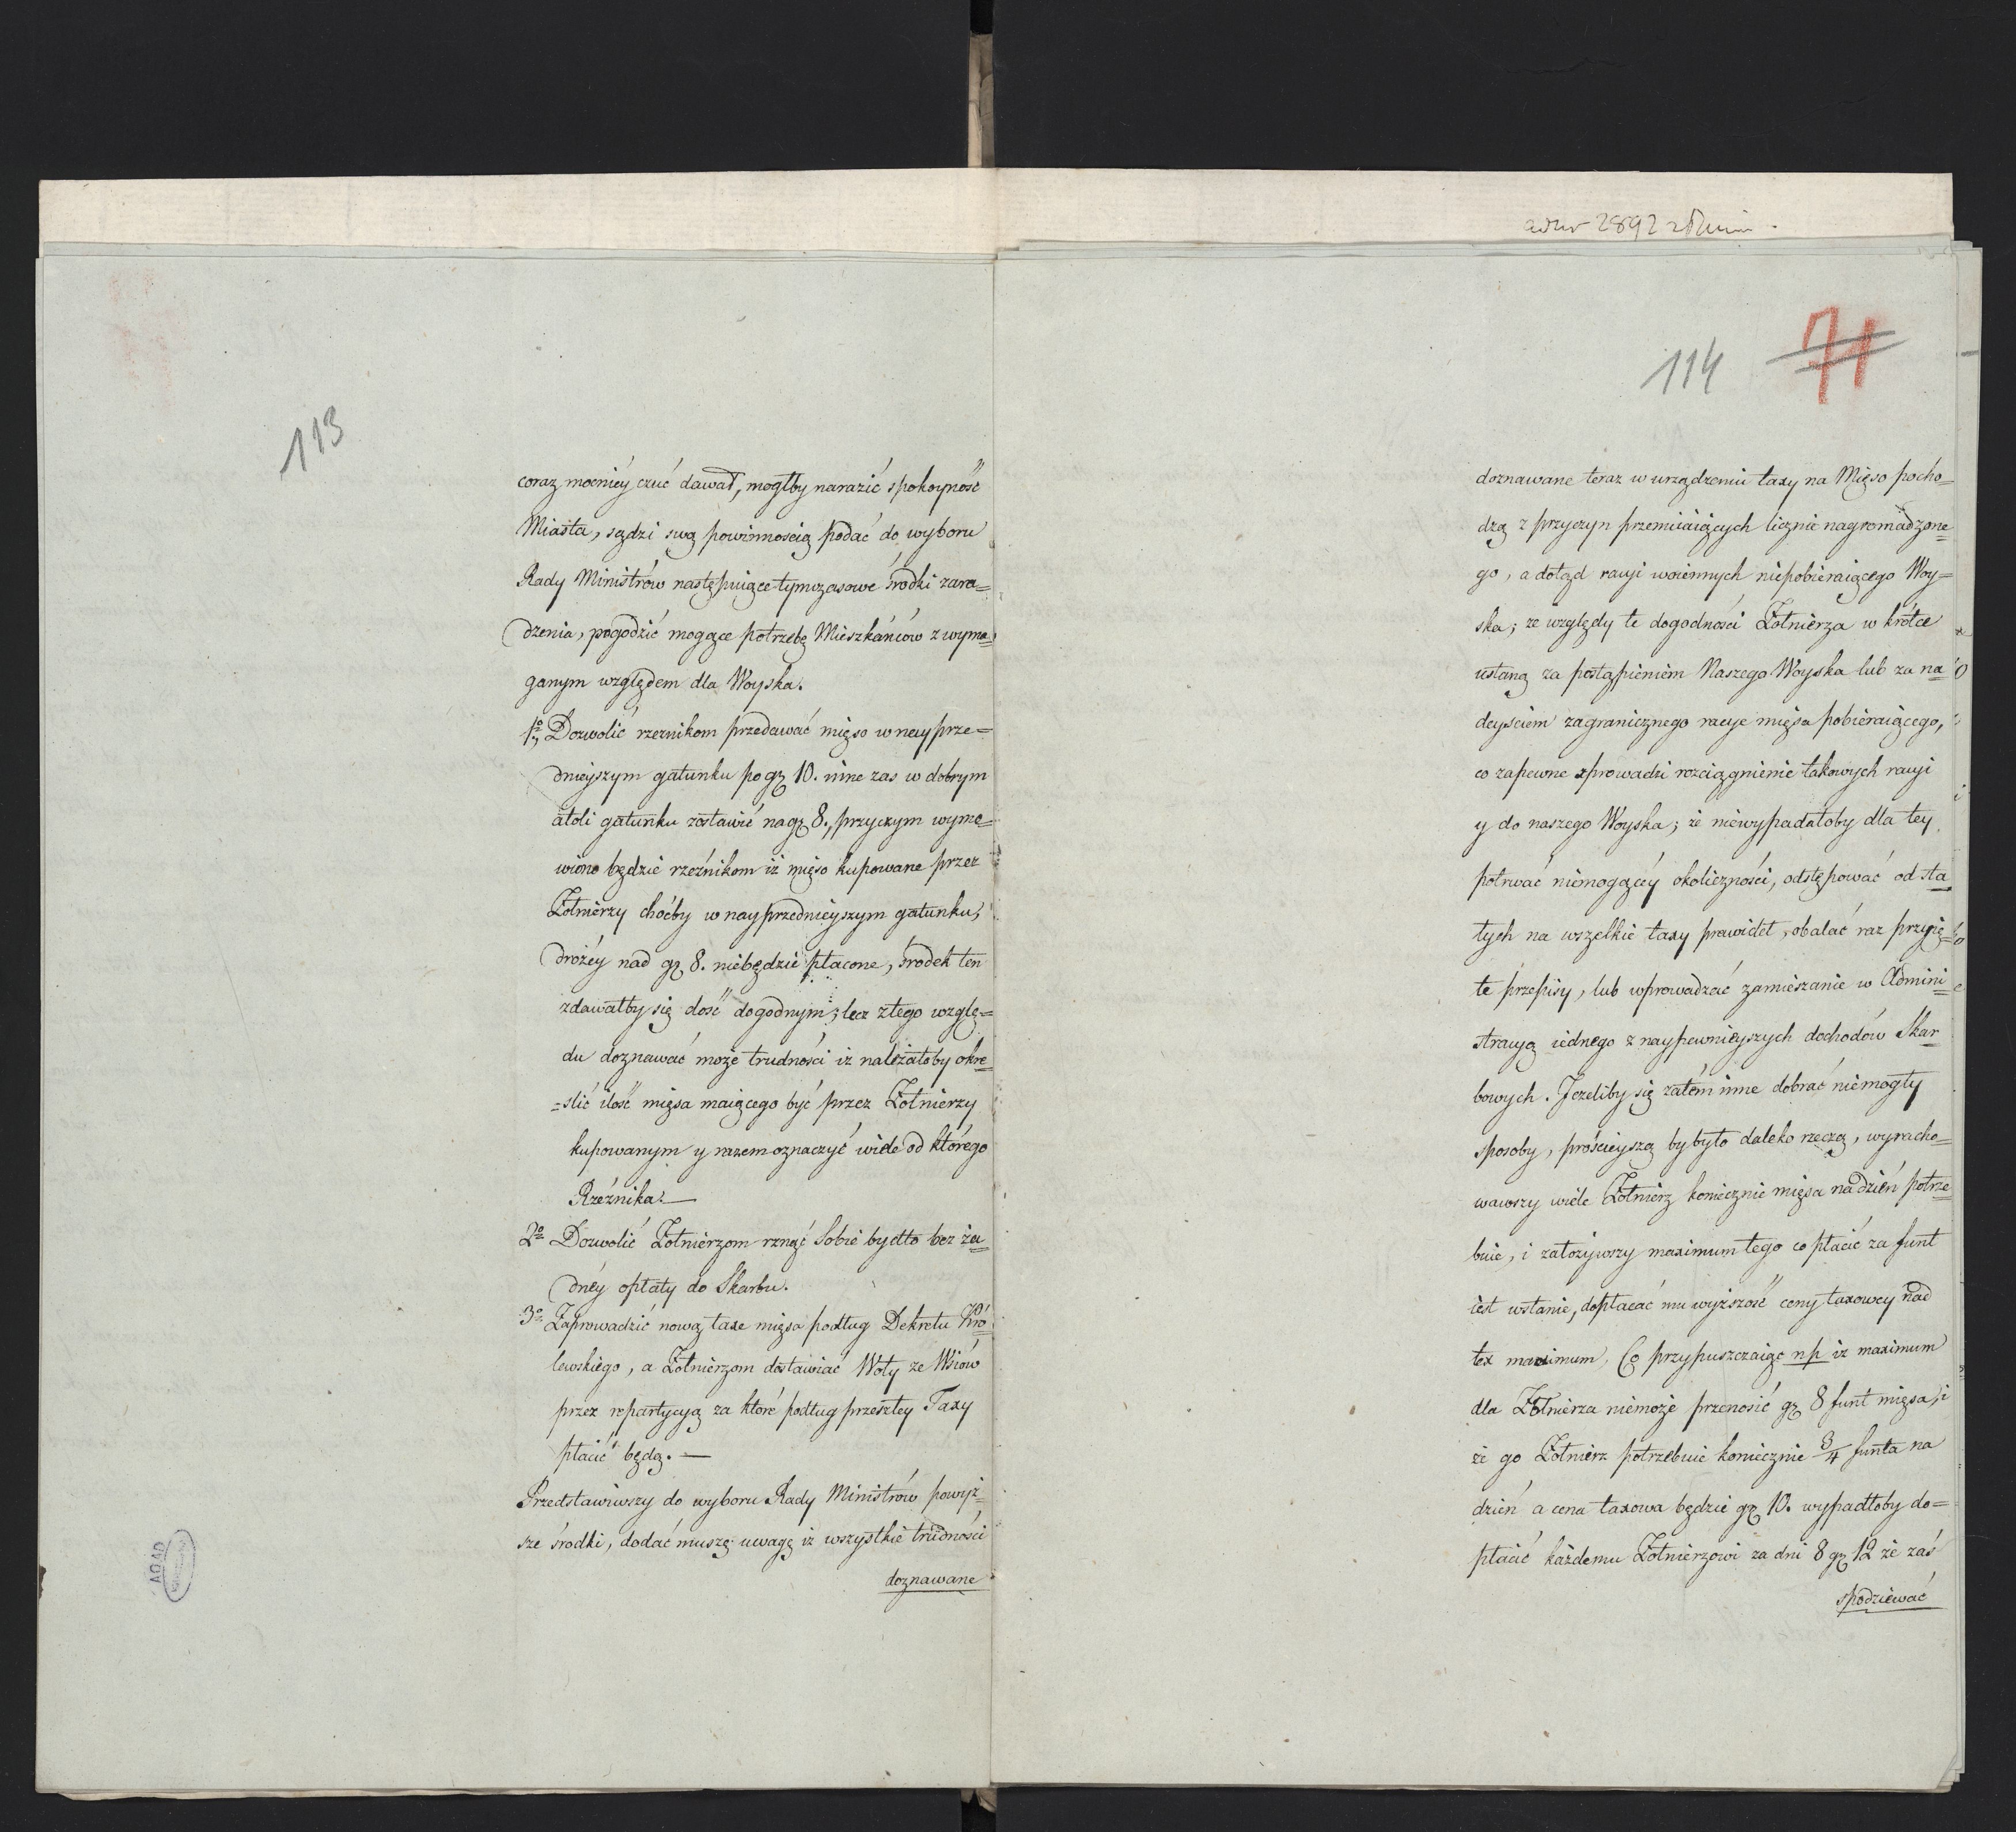 113
coraz mocniéy czuć dawał, mogłby narazić spokoyność
Miasta, sądzi swą powinnością podać do wyboru
Rady Ministrów następuiące tymczasowe środki zara=
dzenia, pogodzić mogące potrzebę Mieszkańców z wyma=
ganym względem dla Woyska.
1º Dozwolić rzeznikom przedawać mięso w nayprze=
dnieyszym gatunku po gr 10. inne zas w dobrym
atoli gatunku zostawić na gr 8., przyczym wymo=
wiono będzie rzeźnikom iż mięso kupowane przez
Żołnierzy choćby w nayprzednieyszym gatunku,
drożéy nad gr 8. niebędzie płacone, środek ten
zdawałby się dość dogodnym; lecz z tego wzglę=
du doznawać może trudności iż należałoby okre=
=slić ilość mięsa maiącego być przez Żołnierzy
kupowanym y razem oznaczyć wiele od którego
Rzeźnika.—
2º Dozwolić Żołnierzom rznąć Sobie bydło bez ża=
dnéy opłaty do Skarbu.
3º Zaprowadzić nową taxe mięsa podług Dekretu Kró=
lewskiego, a Żołnierzom dostawiać Woły ze Wsiów
przez repartycyą za które podług przeszłey Taxy
płacić będą.—
Przedstawiwszy do wyboru Rady Ministrów powyż=
sze środki, dodać muszę uwagę iż wszystkie trudności
doznawane
AGAD
2892
114 71
doznawane teraz w urządzeniu taxy na Mięso pocho=
dzą z przyczyn przemiiaiących licznie nagromadzone=
go, a dotąd racyi woiennych niepobieraiącego Woy=
ska; że względy te dogodności Żołnierza w krótce
ustaną za postąpieniem Naszego Woyska lub za na=
deyściem zagranicznego racye mięsa pobieraiącego,
co zapewne sprowadzi rozciągnienie takowych racyi
y do naszego Woyska; że niewypadałoby dla tey
potrwać niemogącéy okoliczności, odstępować od sta=
łych na wszelkie taxy prawideł, obalać raz przyię=
te przepisy, lub wprowadzać zamieszanie w Admini=
stracyą iednego z naypewnieyszych dochodów Skar=
bowych. Jeżeliby się zatém inne dobrać niemogły
sposoby, prościeyszą by było daleko rzeczą, wyracho=
wawszy wiele Żołnierz koniecznie mięsa na dzień potrze=
buie, i założywszy maximum tego co płacić za funt
iest wstanie, dopłacać mu wyższość ceny taxowey nad
tex maximum. Co przypuszczaiąc np iż maximum
dla Żołnierza niemoże przenosić gr 8 funt mięsa, i
że go Żołnierz potrzebuie koniecznie 3/4 funta na
dzień a cena taxowa będzie gr 10. wypadłoby do=
płacić każdemu Żołnierzowi za dni 8 gr 12 że zaś
spodziewać